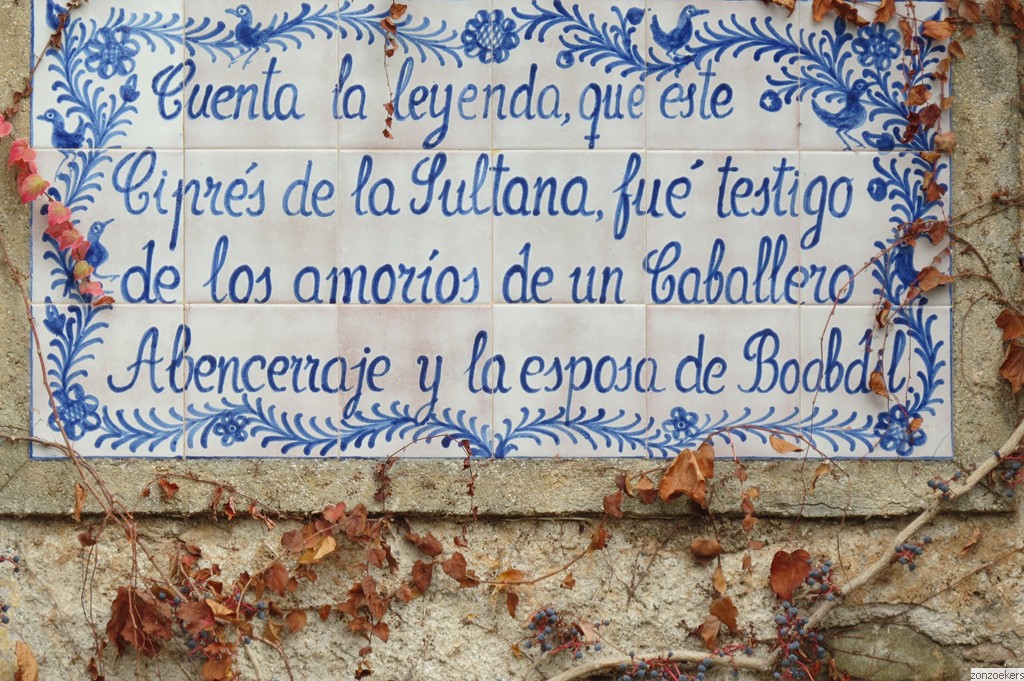 Cuenta la leyenda, que este
Ciprés de la Sultana, fué testigo
de los amoríos de un Caballero
Abencerraje y la esposa de Boabdil.
zonzoekers